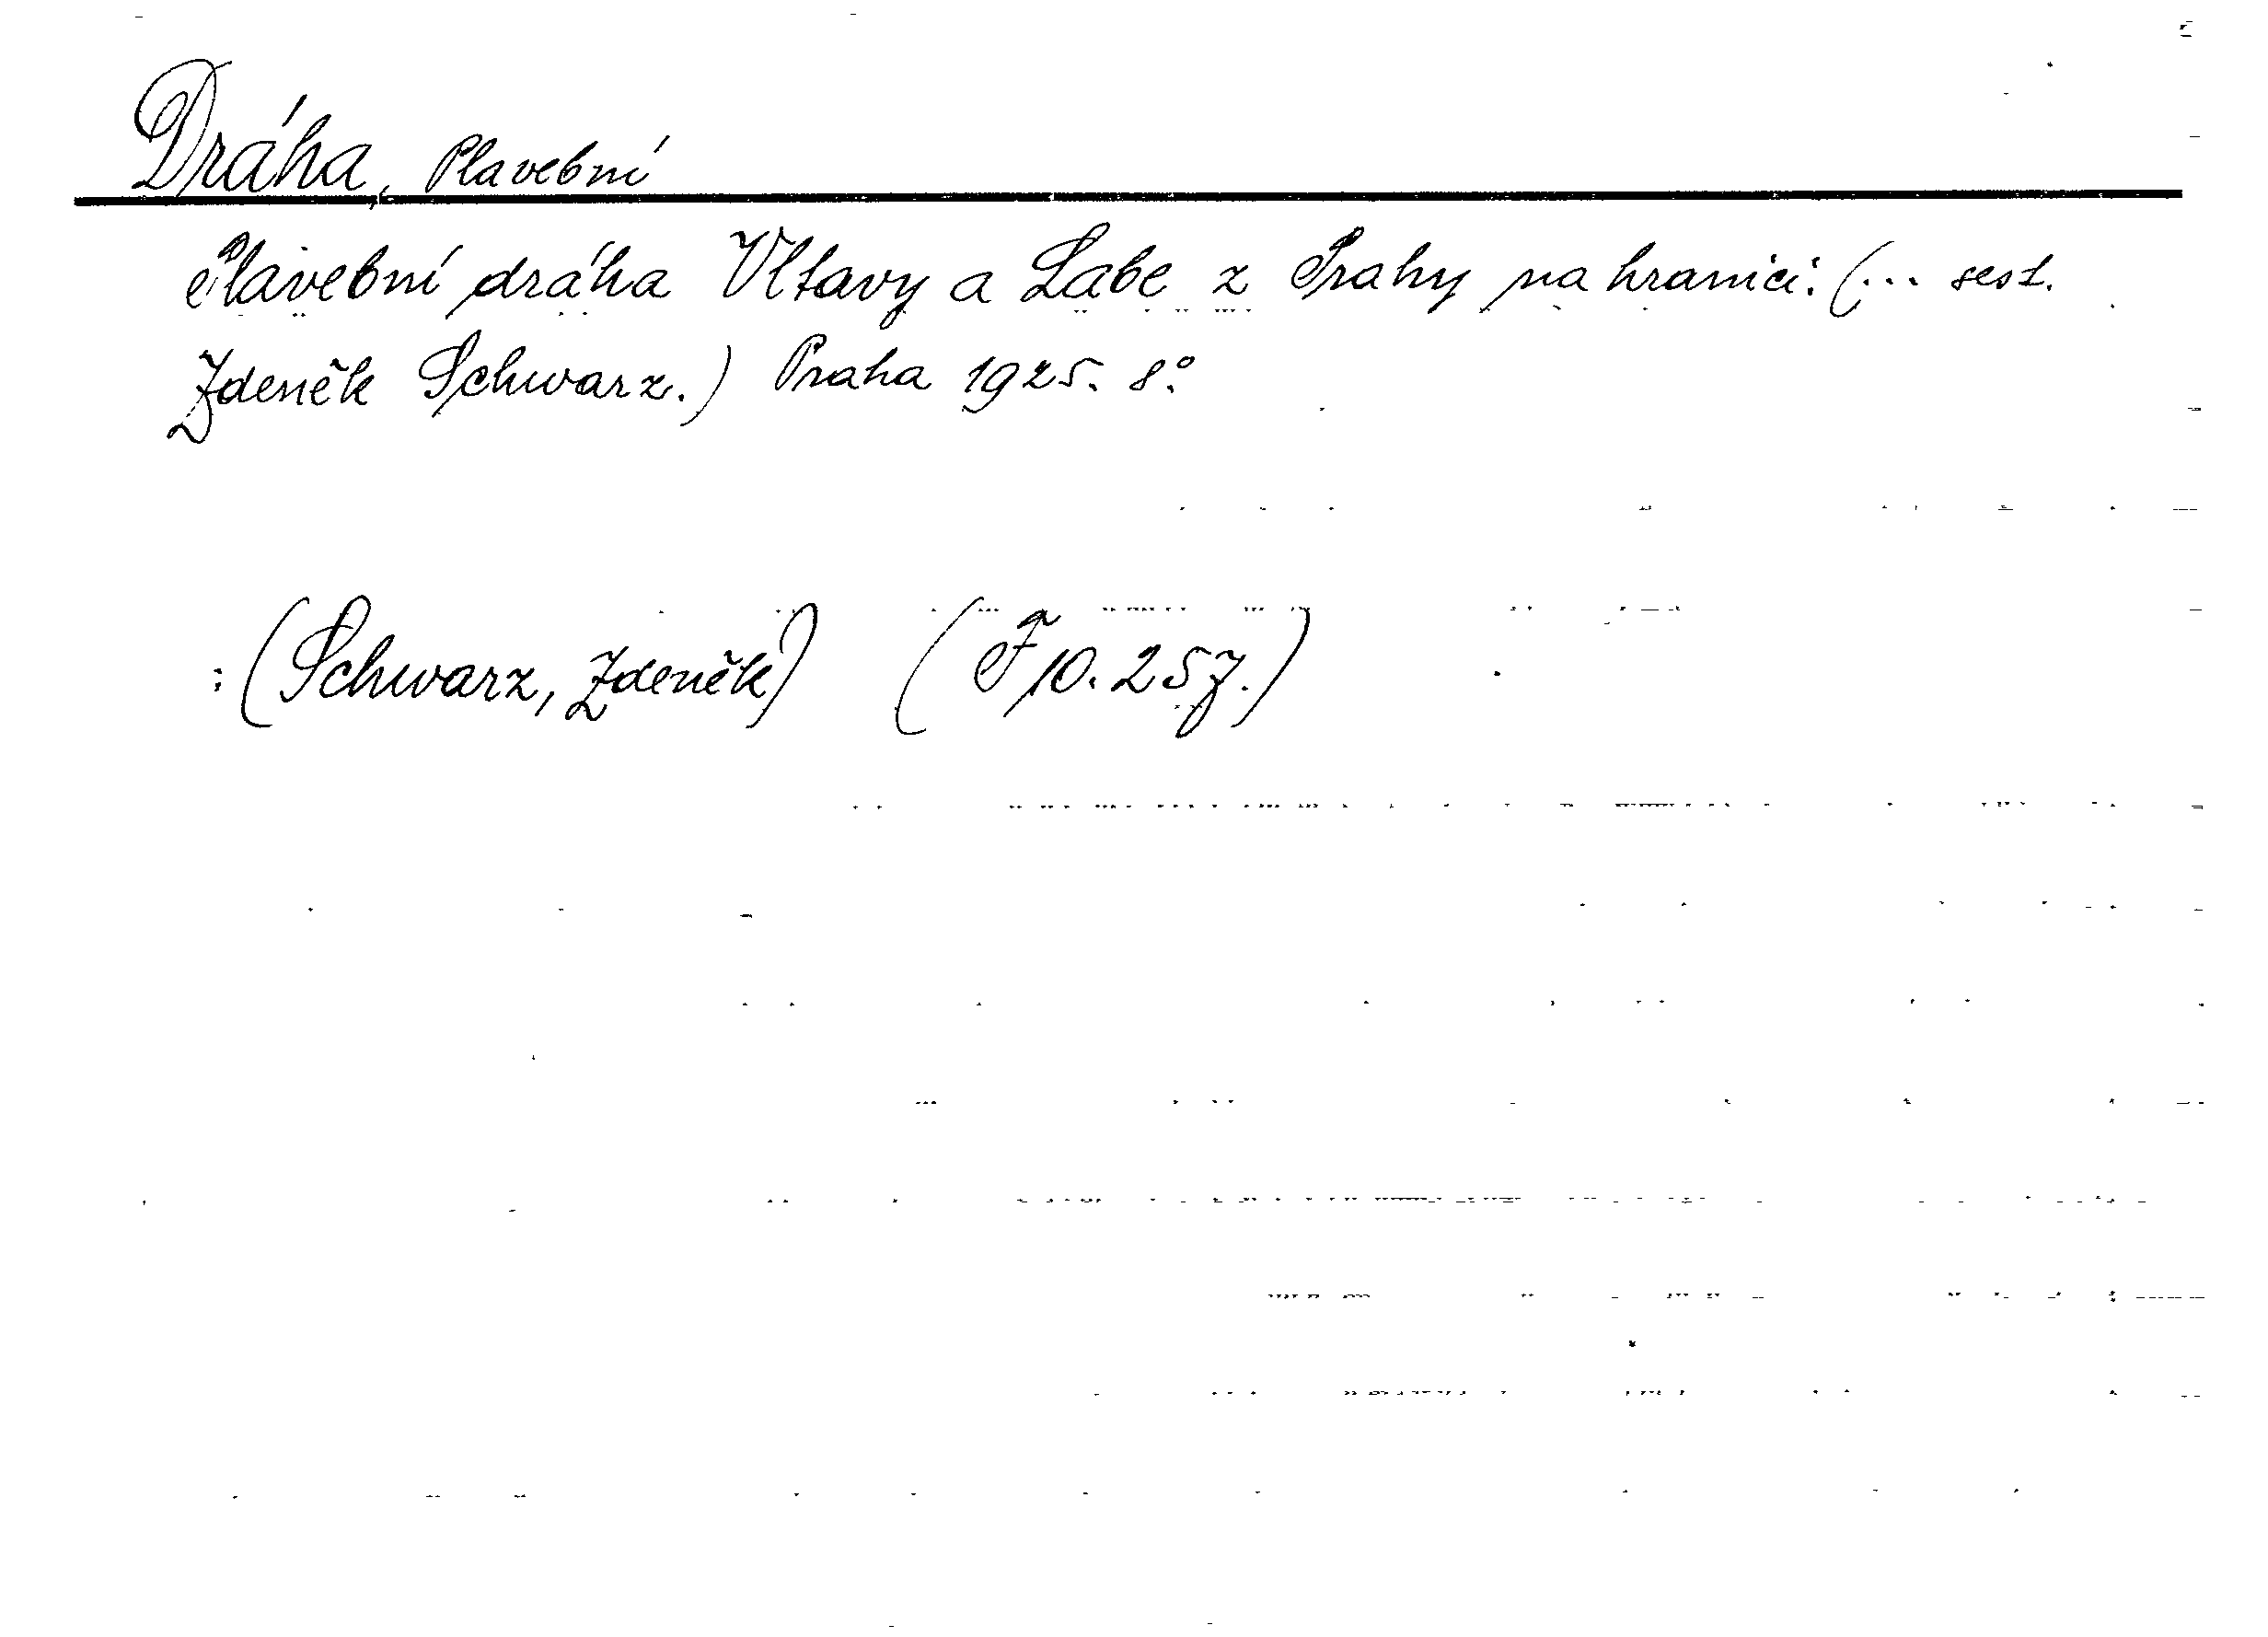 Dráha, Plavební
Plavební dráha Vltavy a Labe z Prahy na hranici. (... sest.
Zdeněk Schwarz.) Praha 1925. 8°.
(Schwarz, Zdeněk) (F 10.257.)